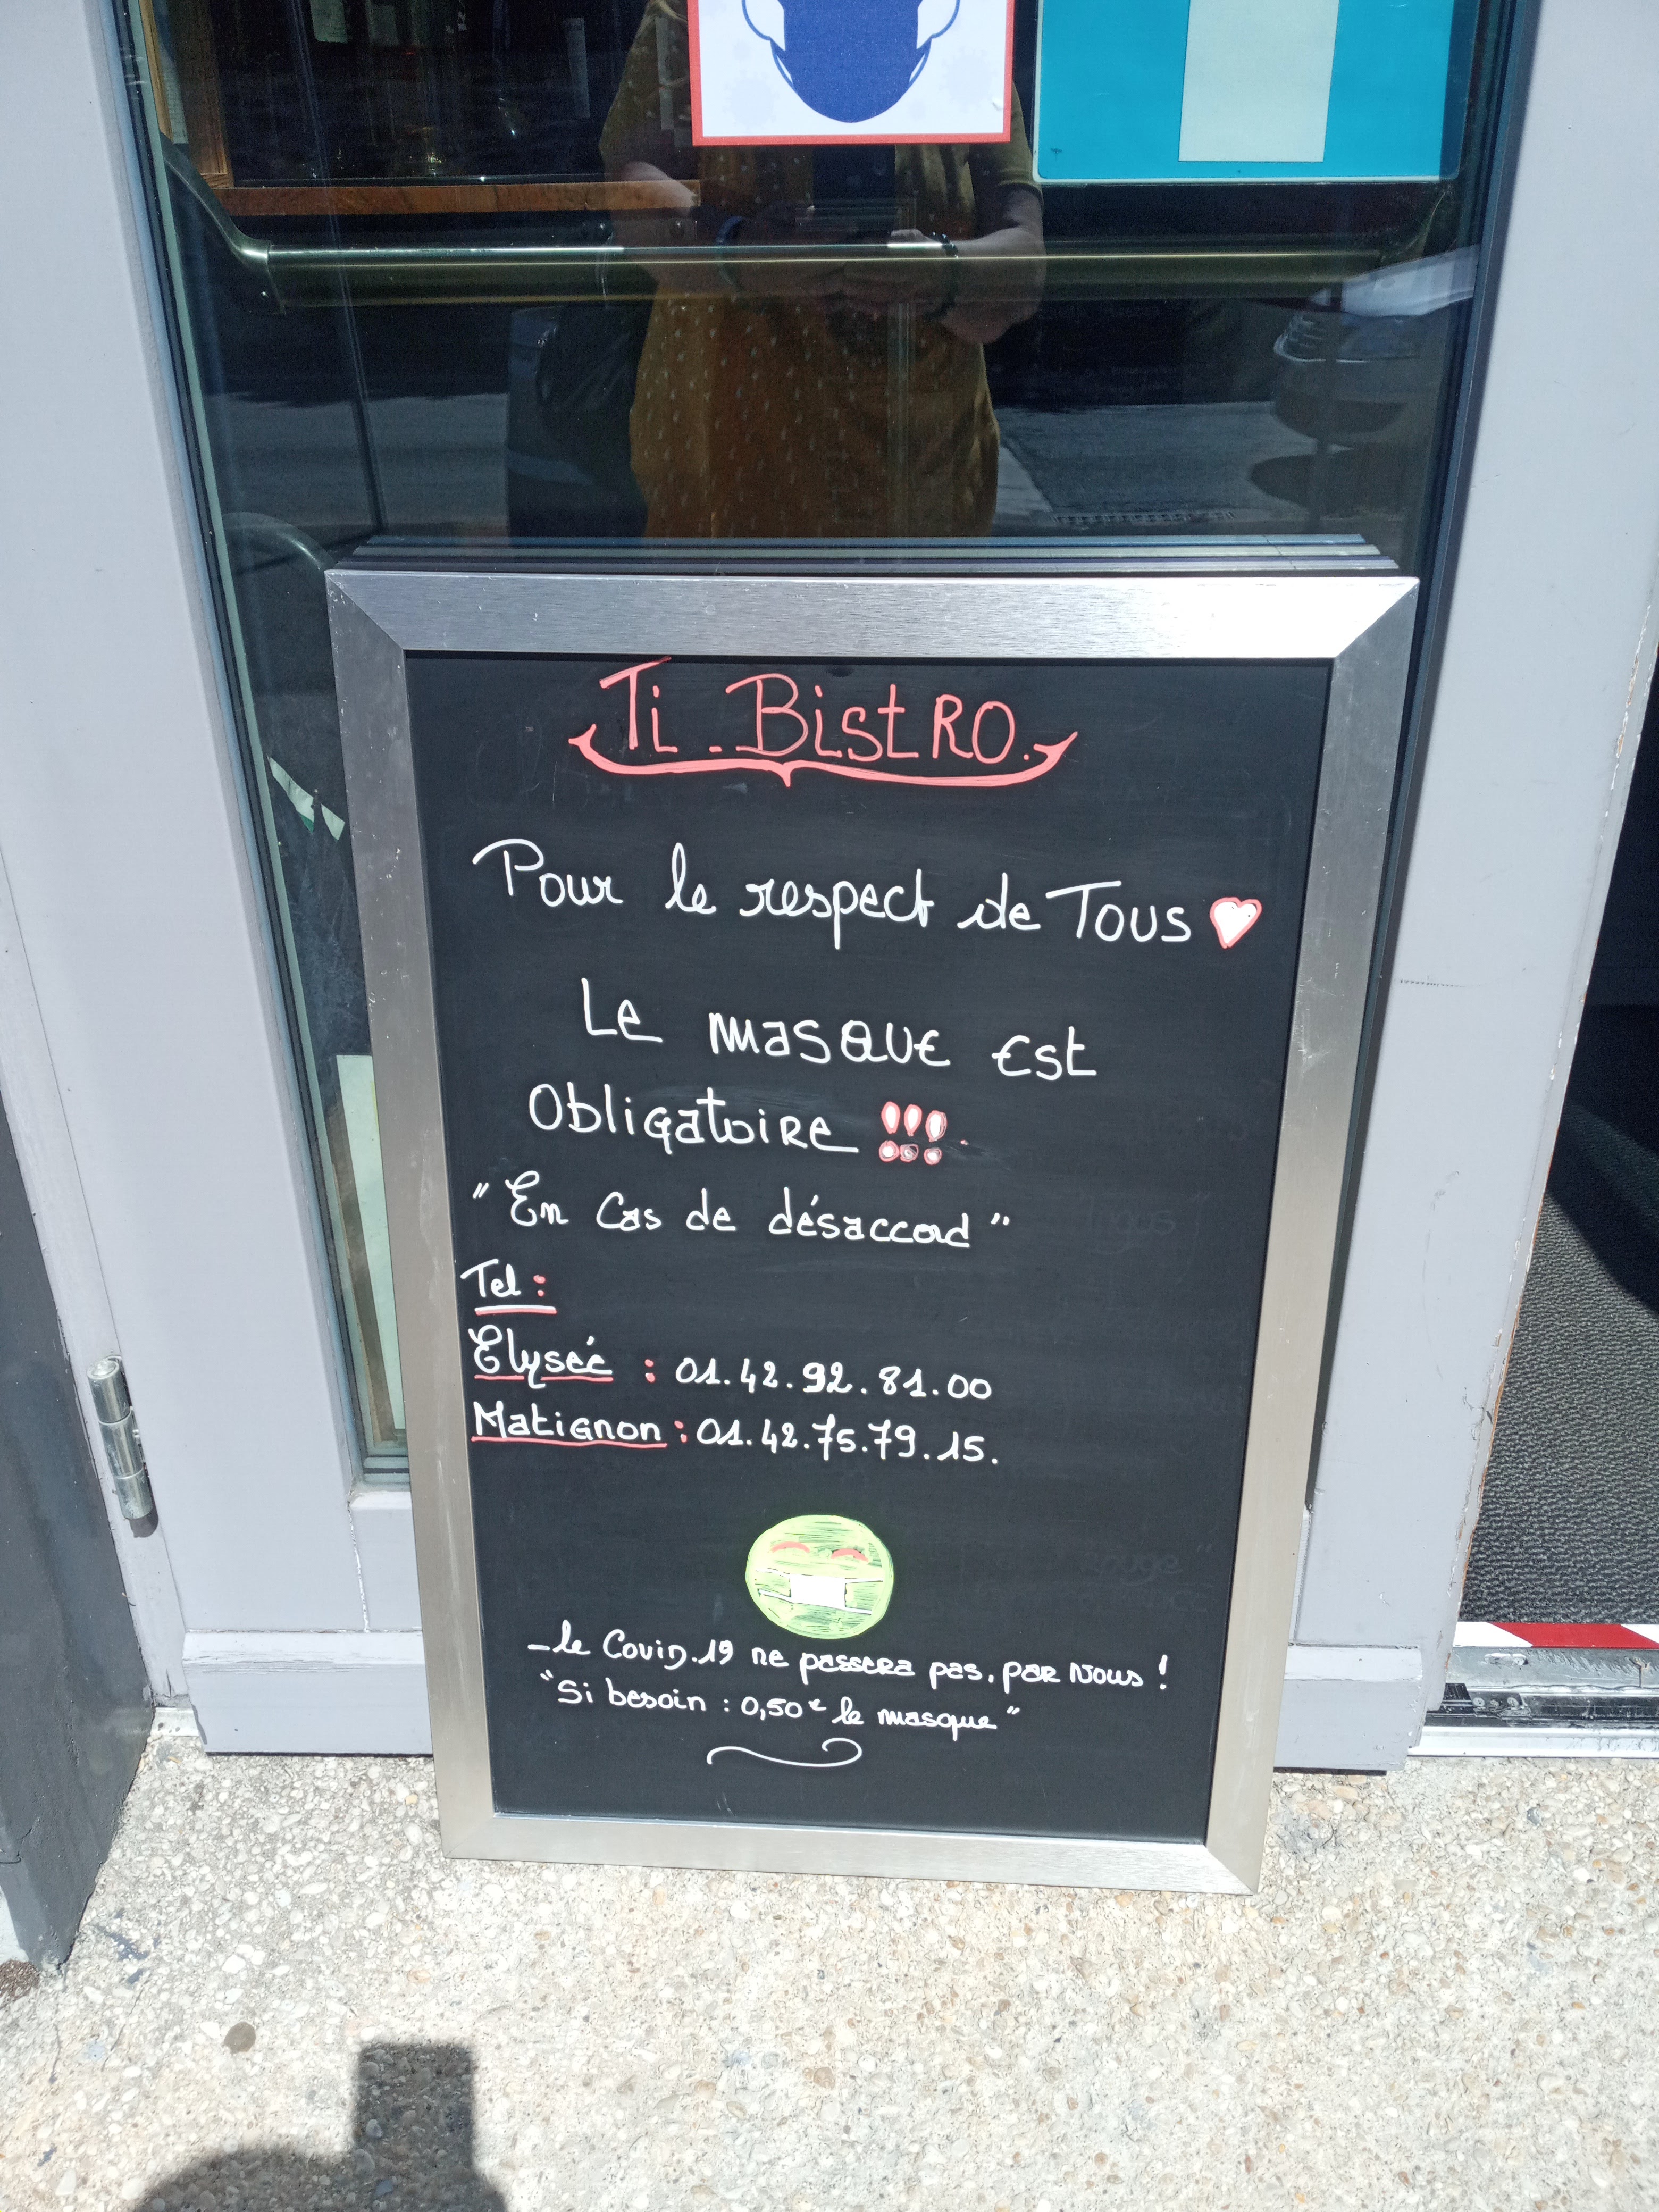 Ti-Bistro.
Pour le respect de Tous
Le masque est
Obligatoire !!!
"En Cas de désaccord"
Tel :
Elysée : 01.42.92.81.00
Matignon : 01.42.75.79.15.
-le Covid.19 ne passera pas, par Nous !
"Si besoin : 0,50€ le masque"